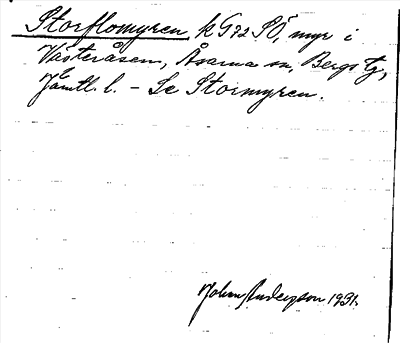 Storflomyren k G 72 SÖ, myr i
Västeråsen, Åsarna sn, Bergs tg,
Jämtl. l. – Se Stormyren.
Johan Anderzson 1931.